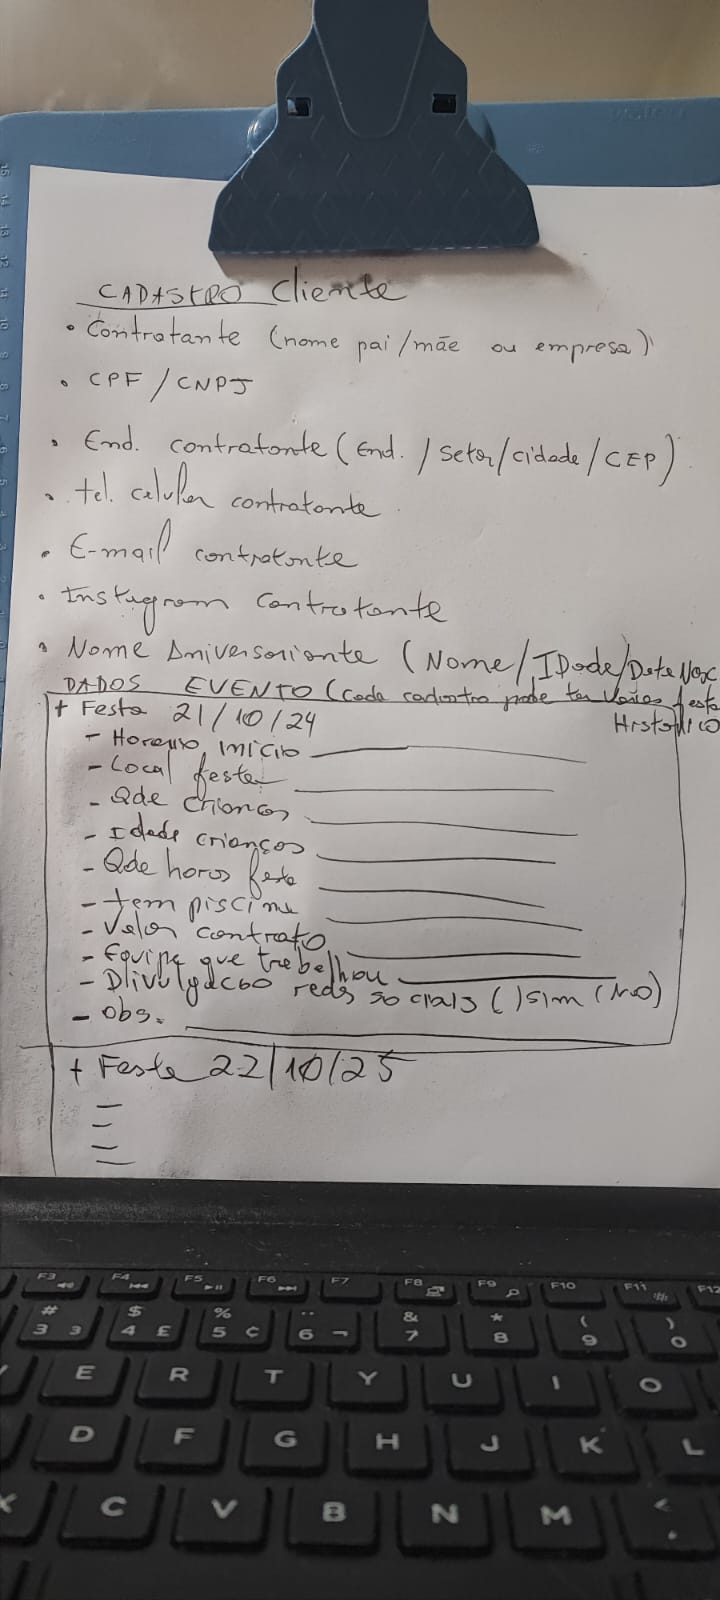 CADASTRO Cliente
• Contratante (nome pai/mãe ou empresa)
• CPF/CNPJ
• End. contratante (End. / Setor/cidade/CEP)
• tel. celular contratante
• E-mail contratante
• Instagram contratante
• Nome Aniversariante (Nome/IDade/Data Nasc
DADOS EVENTO (Cada cadastro pode ter várias festas
Histórico
+ Festa 21/10/24
- Horario início
- Local festa
- Qde crianças
- Idade crianças
- Qde horas festa
- tem piscina
- Valor contrato
- Equipe que trabalhou
- Divulgacao redes sociais ( )sim (Não)
- Obs.
+ Festa 22/10/25
F3 F4 F5 F6 F7 F8 F9 F10 F11 F12
# 3 3 $ 4 £ % 5 ¢ ¨ 6 ¬ & 7 * 8 ( 9 ) 0
E R T Y U I O
D F G H J K L
X C V B N M < ,